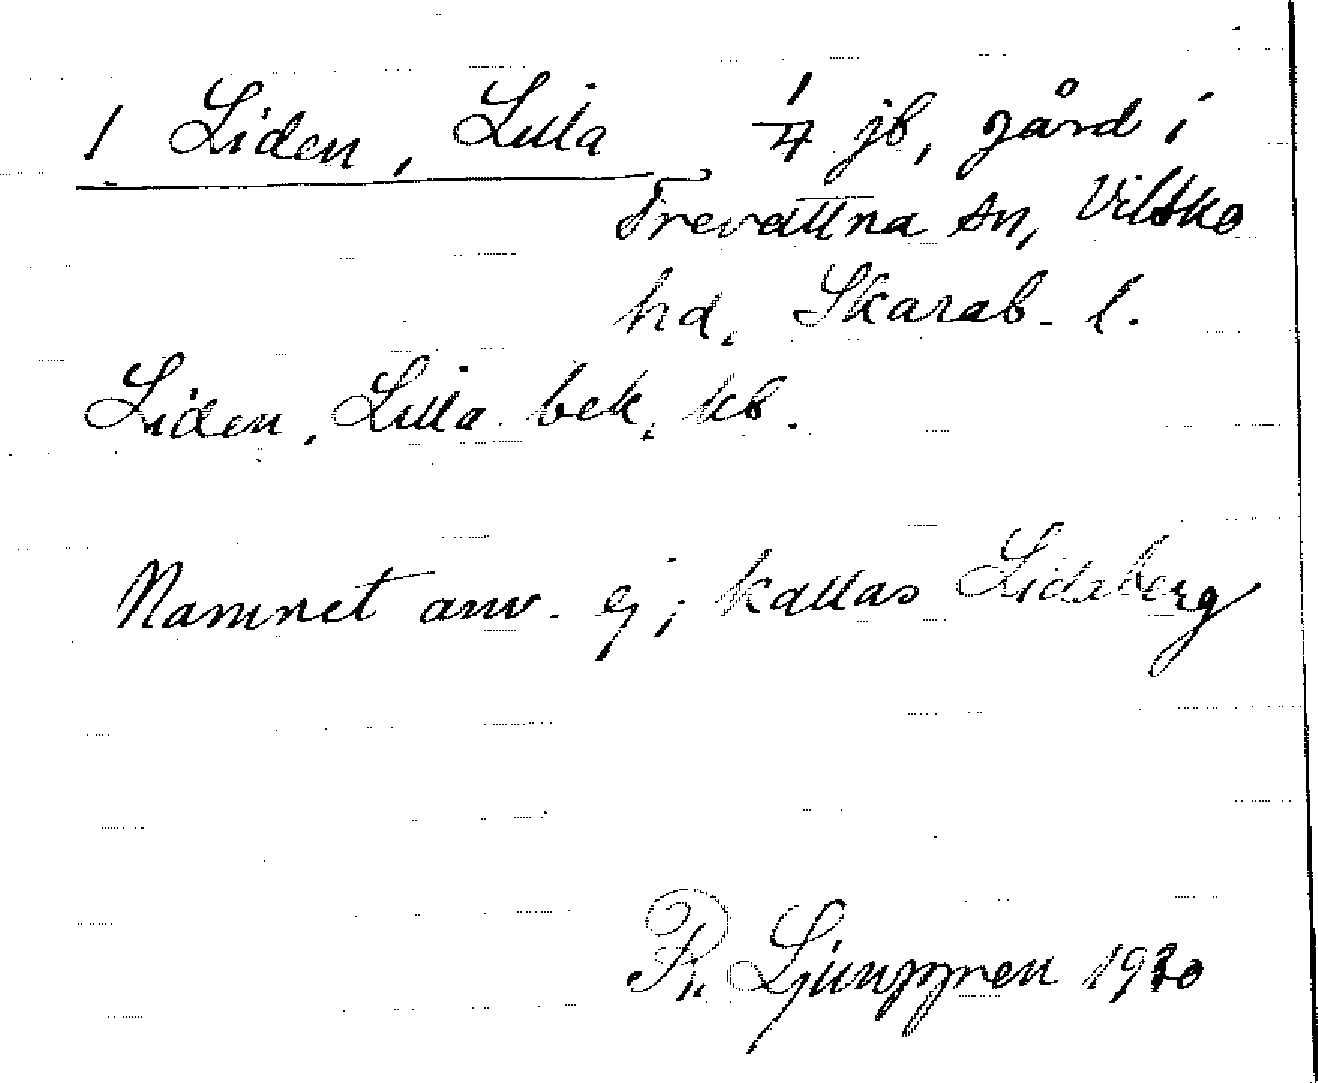 1 Liden, Lilla 1/4 jb, gård i
Trevattna sn, Vilske
hd. Skarab. l.
Liden, Lilla bek. kb.
Namnet anv. ej; kallas Lideberg
R. Ljunggren